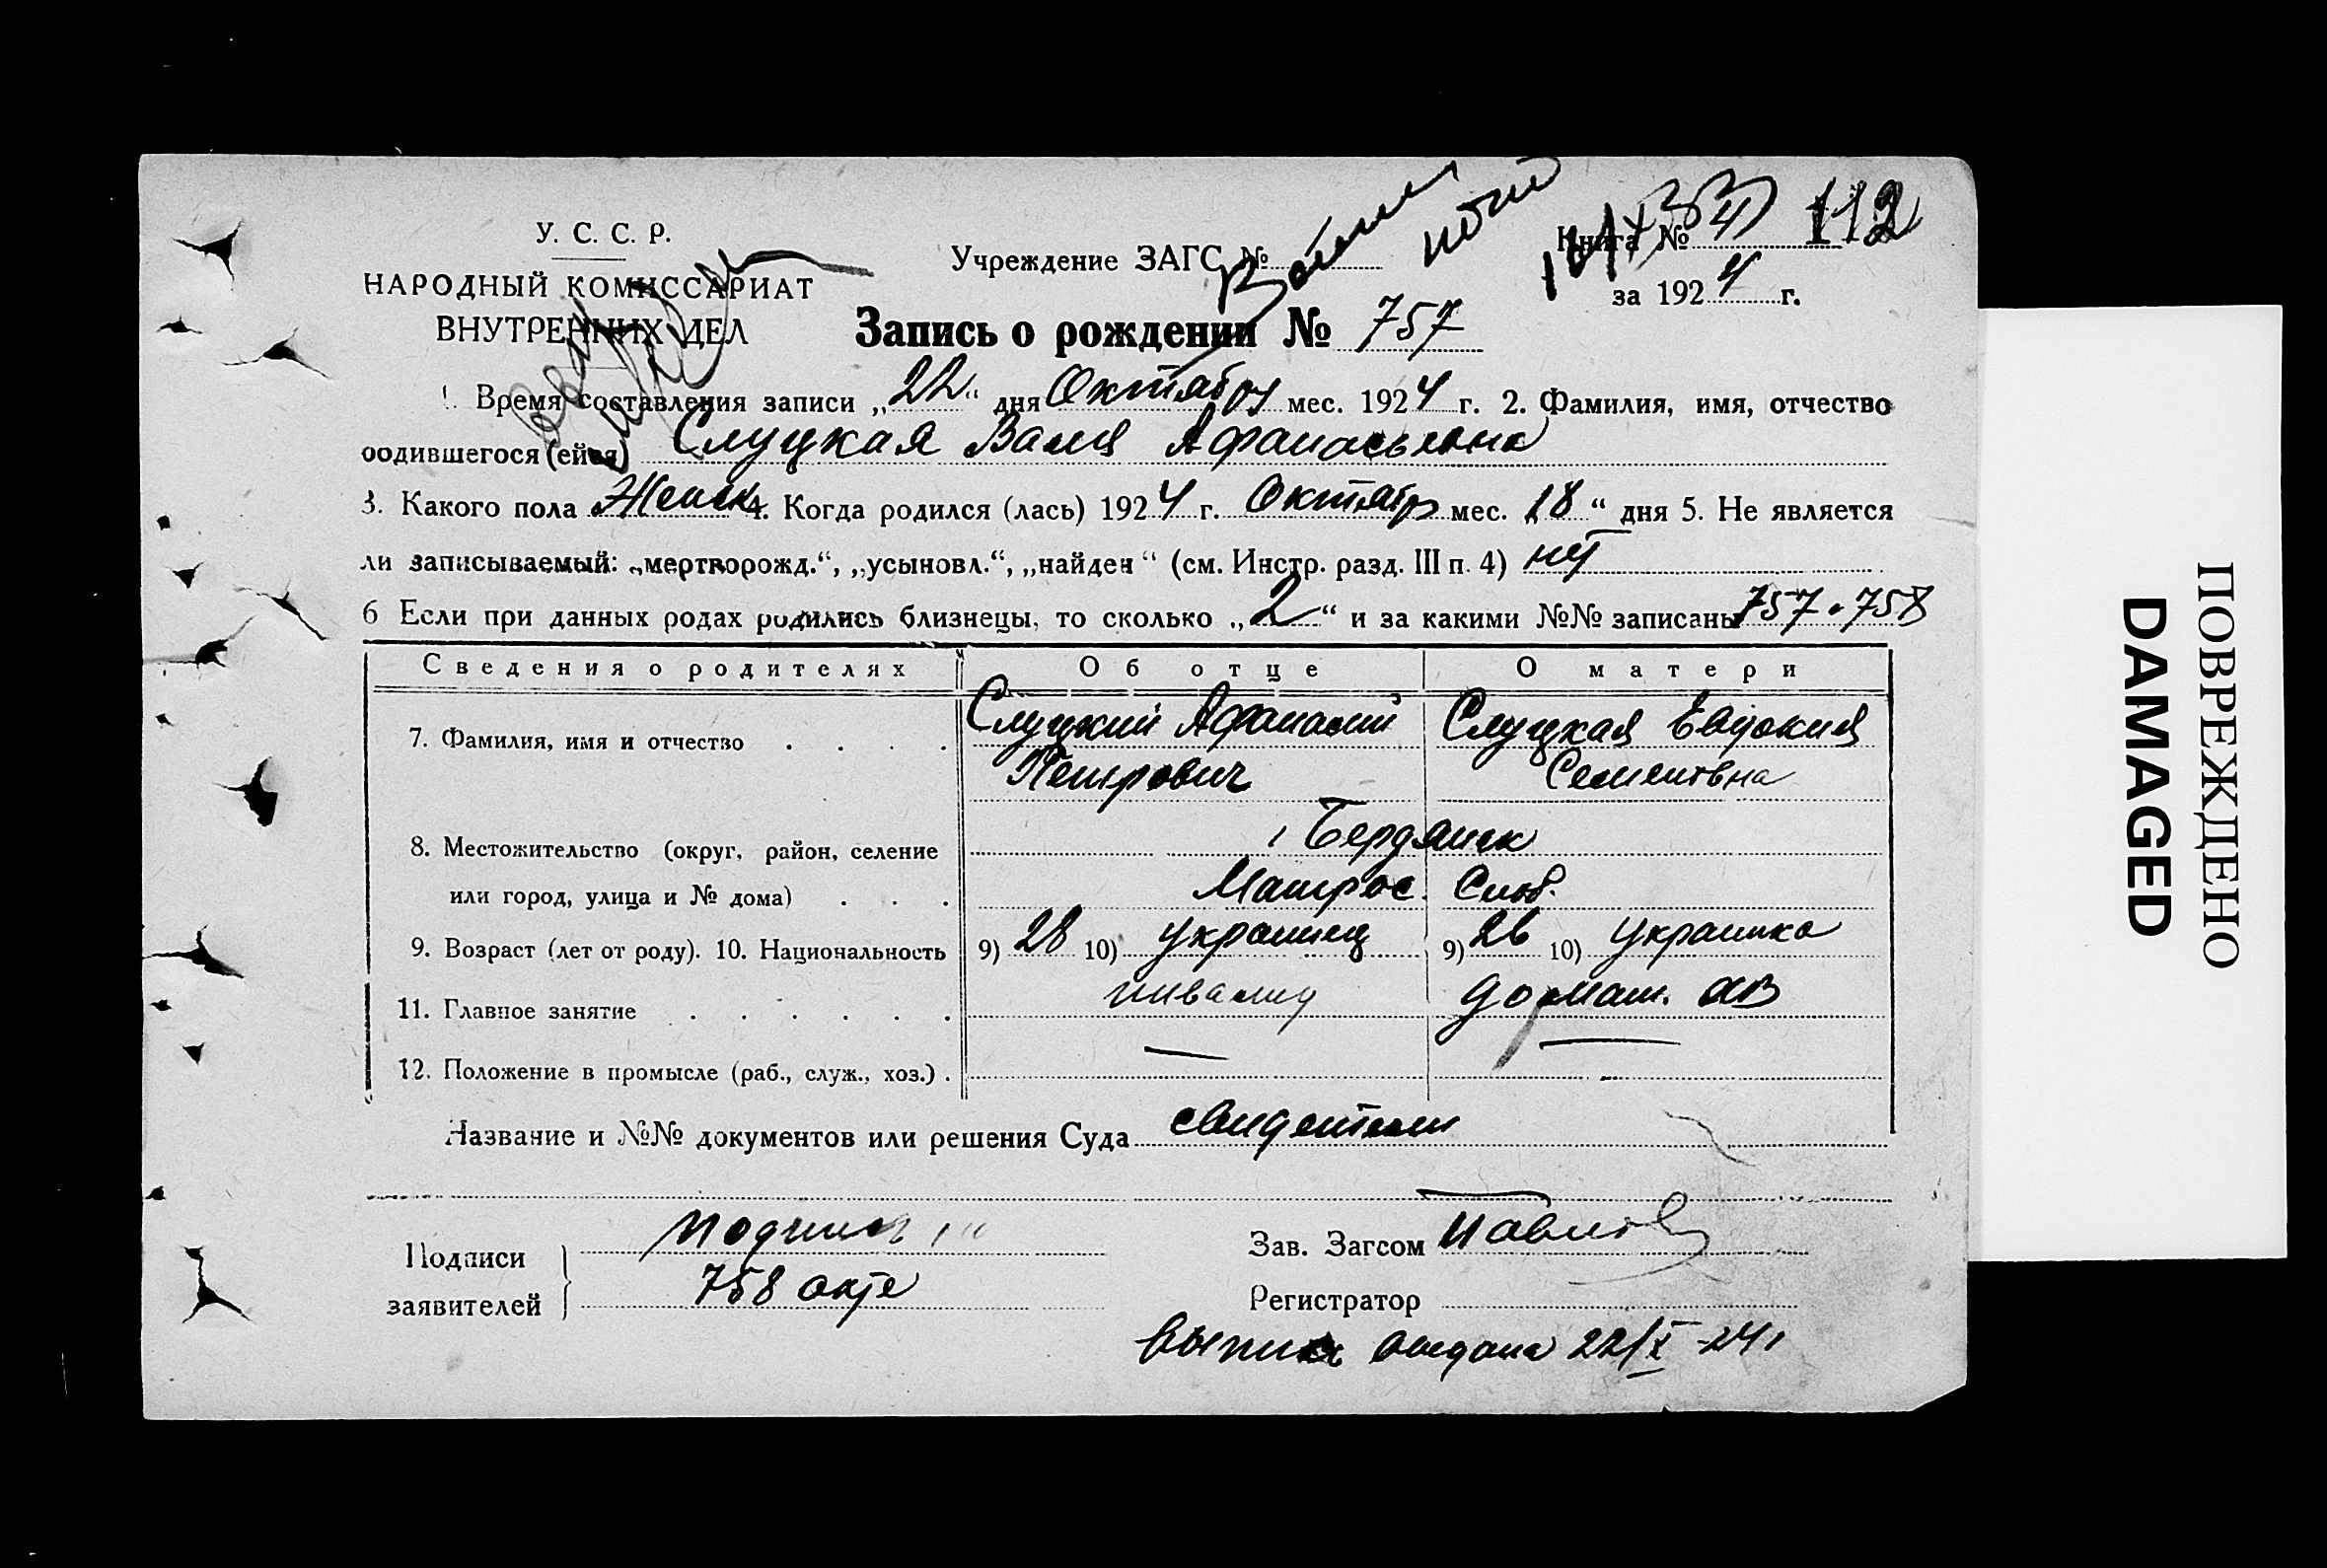 У. С. С. Р.
НАРОДНЫЙ КОМИССАРИАТ
ВНУТРЕННИХ ДЕЛ
Учреждение ЗАГС №
Книга № 112
за 1924 г.
Запись о рождении № 757
1. Время составления записи „22“ дня Октября мес. 1924 г. 2. Фамилия, имя, отчество
родившегося (ейся) Слуцкая Валя Афанасьевна
3. Какого пола Женск. 4. Когда родился (лась) 1924 г. Октября мес. 18 “ дня 5. Не является
ли записываемый: „мертворожд.“, „усыновл.“, „найден“ (см. Инстр. разд. III п. 4) нет
6 Если при данных родах родились близнецы, то сколько „2“ и за какими №№ записаны 757 • 758
Сведения о родителях Об отце О матери
7. Фамилия, имя и отчество . . . . Слуцкий Афанасий Слуцкая Евдокия
Петрович Семеновна
8. Местожительство (округ, район, селение г Бердянск
или город, улица и № дома) . . . Матрос. Слоб.
9. Возраст (лет от роду). 10. Национальность 9) 28 10) украинец 9) 26 10) украинка
11. Главное занятие . . . . . . инвалид домаш. хоз
12. Положение в промысле (раб., служ., хоз.) . — —
Название и №№ документов или решения Суда свидетели
Подписи
заявителей
758 акте
Зав. Загсом
Регистратор
Выпись выдана 22/X-24г
ПОВРЕЖДЕНО
DAMAGED